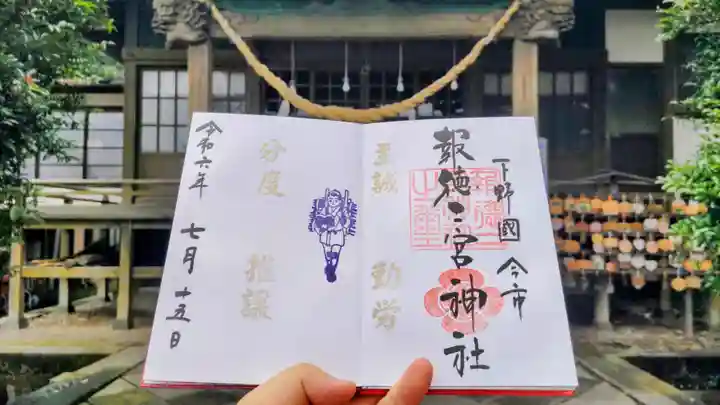 下野國 今市
報徳二宮神社
至誠 勤労
分度 推譲
令和六年 七月 十五日